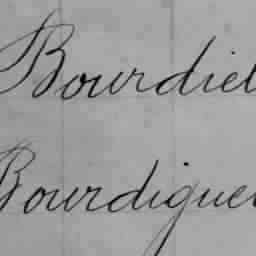 Bourdiel
Bourdigue